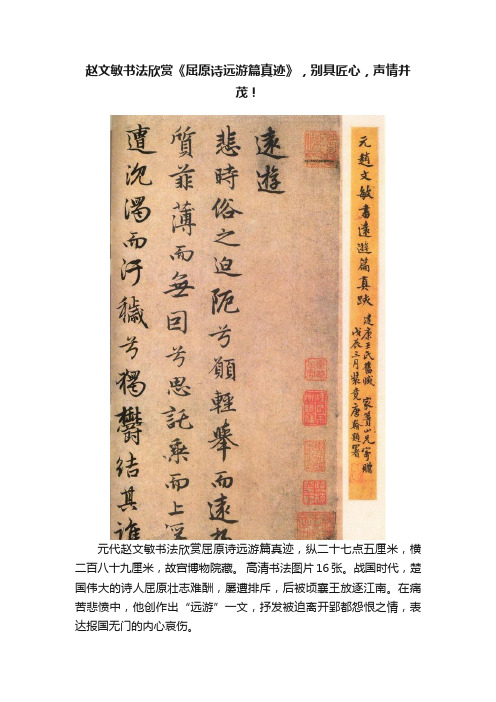 赵文敏书法欣赏《屈原诗远游篇真迹》，别具匠心，声情并
茂！
元趙文敏書遠遊篇真跡
遠遊
悲時俗之迫阨兮願輕舉而遠
質菲薄而無因兮思託乘而上
遭沈濁而汙穢兮獨鬱結其誰
元代赵文敏书法欣赏屈原诗远游篇真迹，纵二十七点五厘米，横
二百八十九厘米，故宫博物院藏。 高清书法图片16张。战国时代，楚
国伟大的诗人屈原壮志难酬，屡遭排斥，后被顷襄王放逐江南。在痛
苦悲愤中，他创作出“远游”一文，抒发被迫离开郢都怨恨之情，表
达报国无门的内心哀伤。